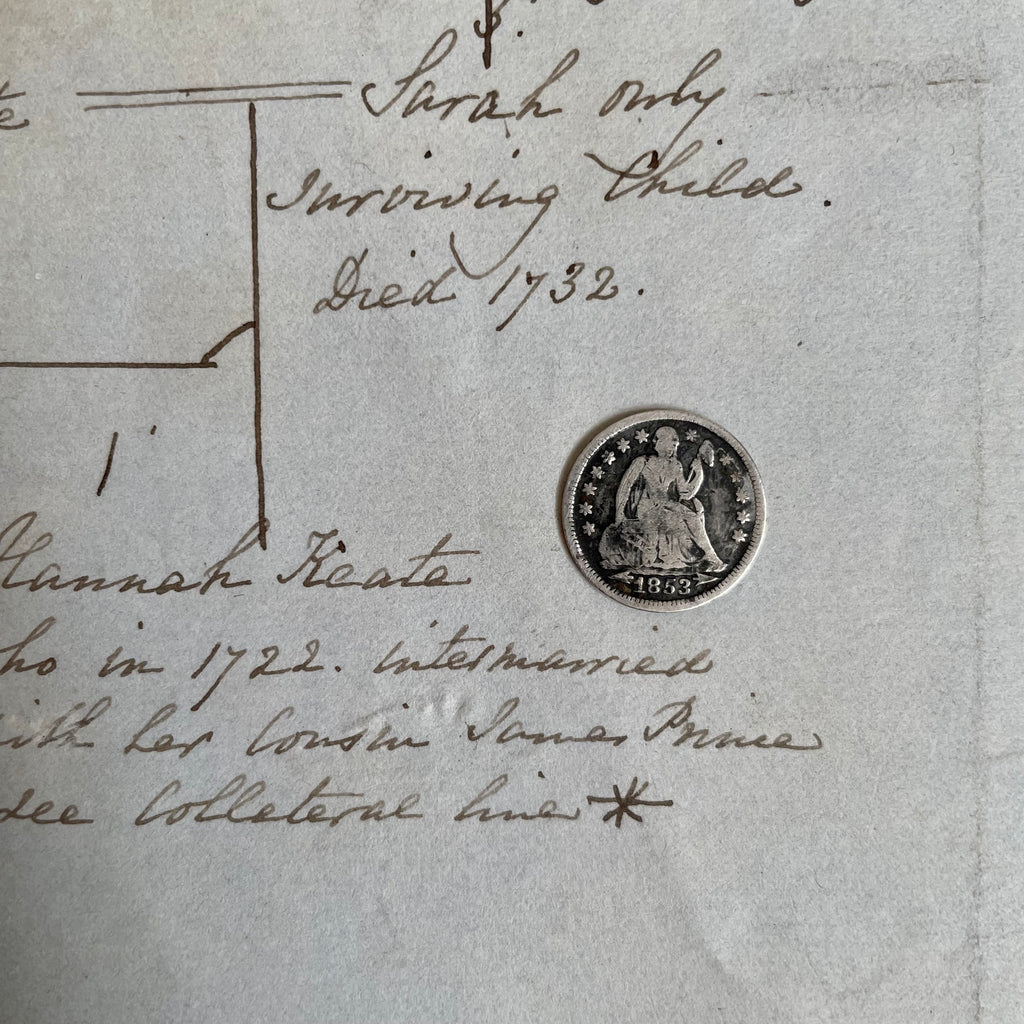 Sarah only
surviving Child.
Died 1732.
1853
Hannah Keate
ho in 1722. intermarried
ith her Cousin James Prince
see Collateral line *